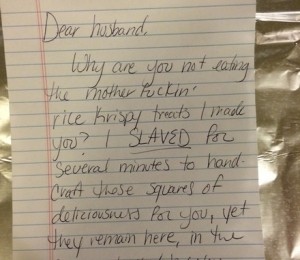 Dear husband,
Why are you not eating
the mother fuckin'
rice krispy treats I made
you? I SLAVED for
several minutes to hand-
craft these squares of
deliciousness for you, yet
they remain here, in the